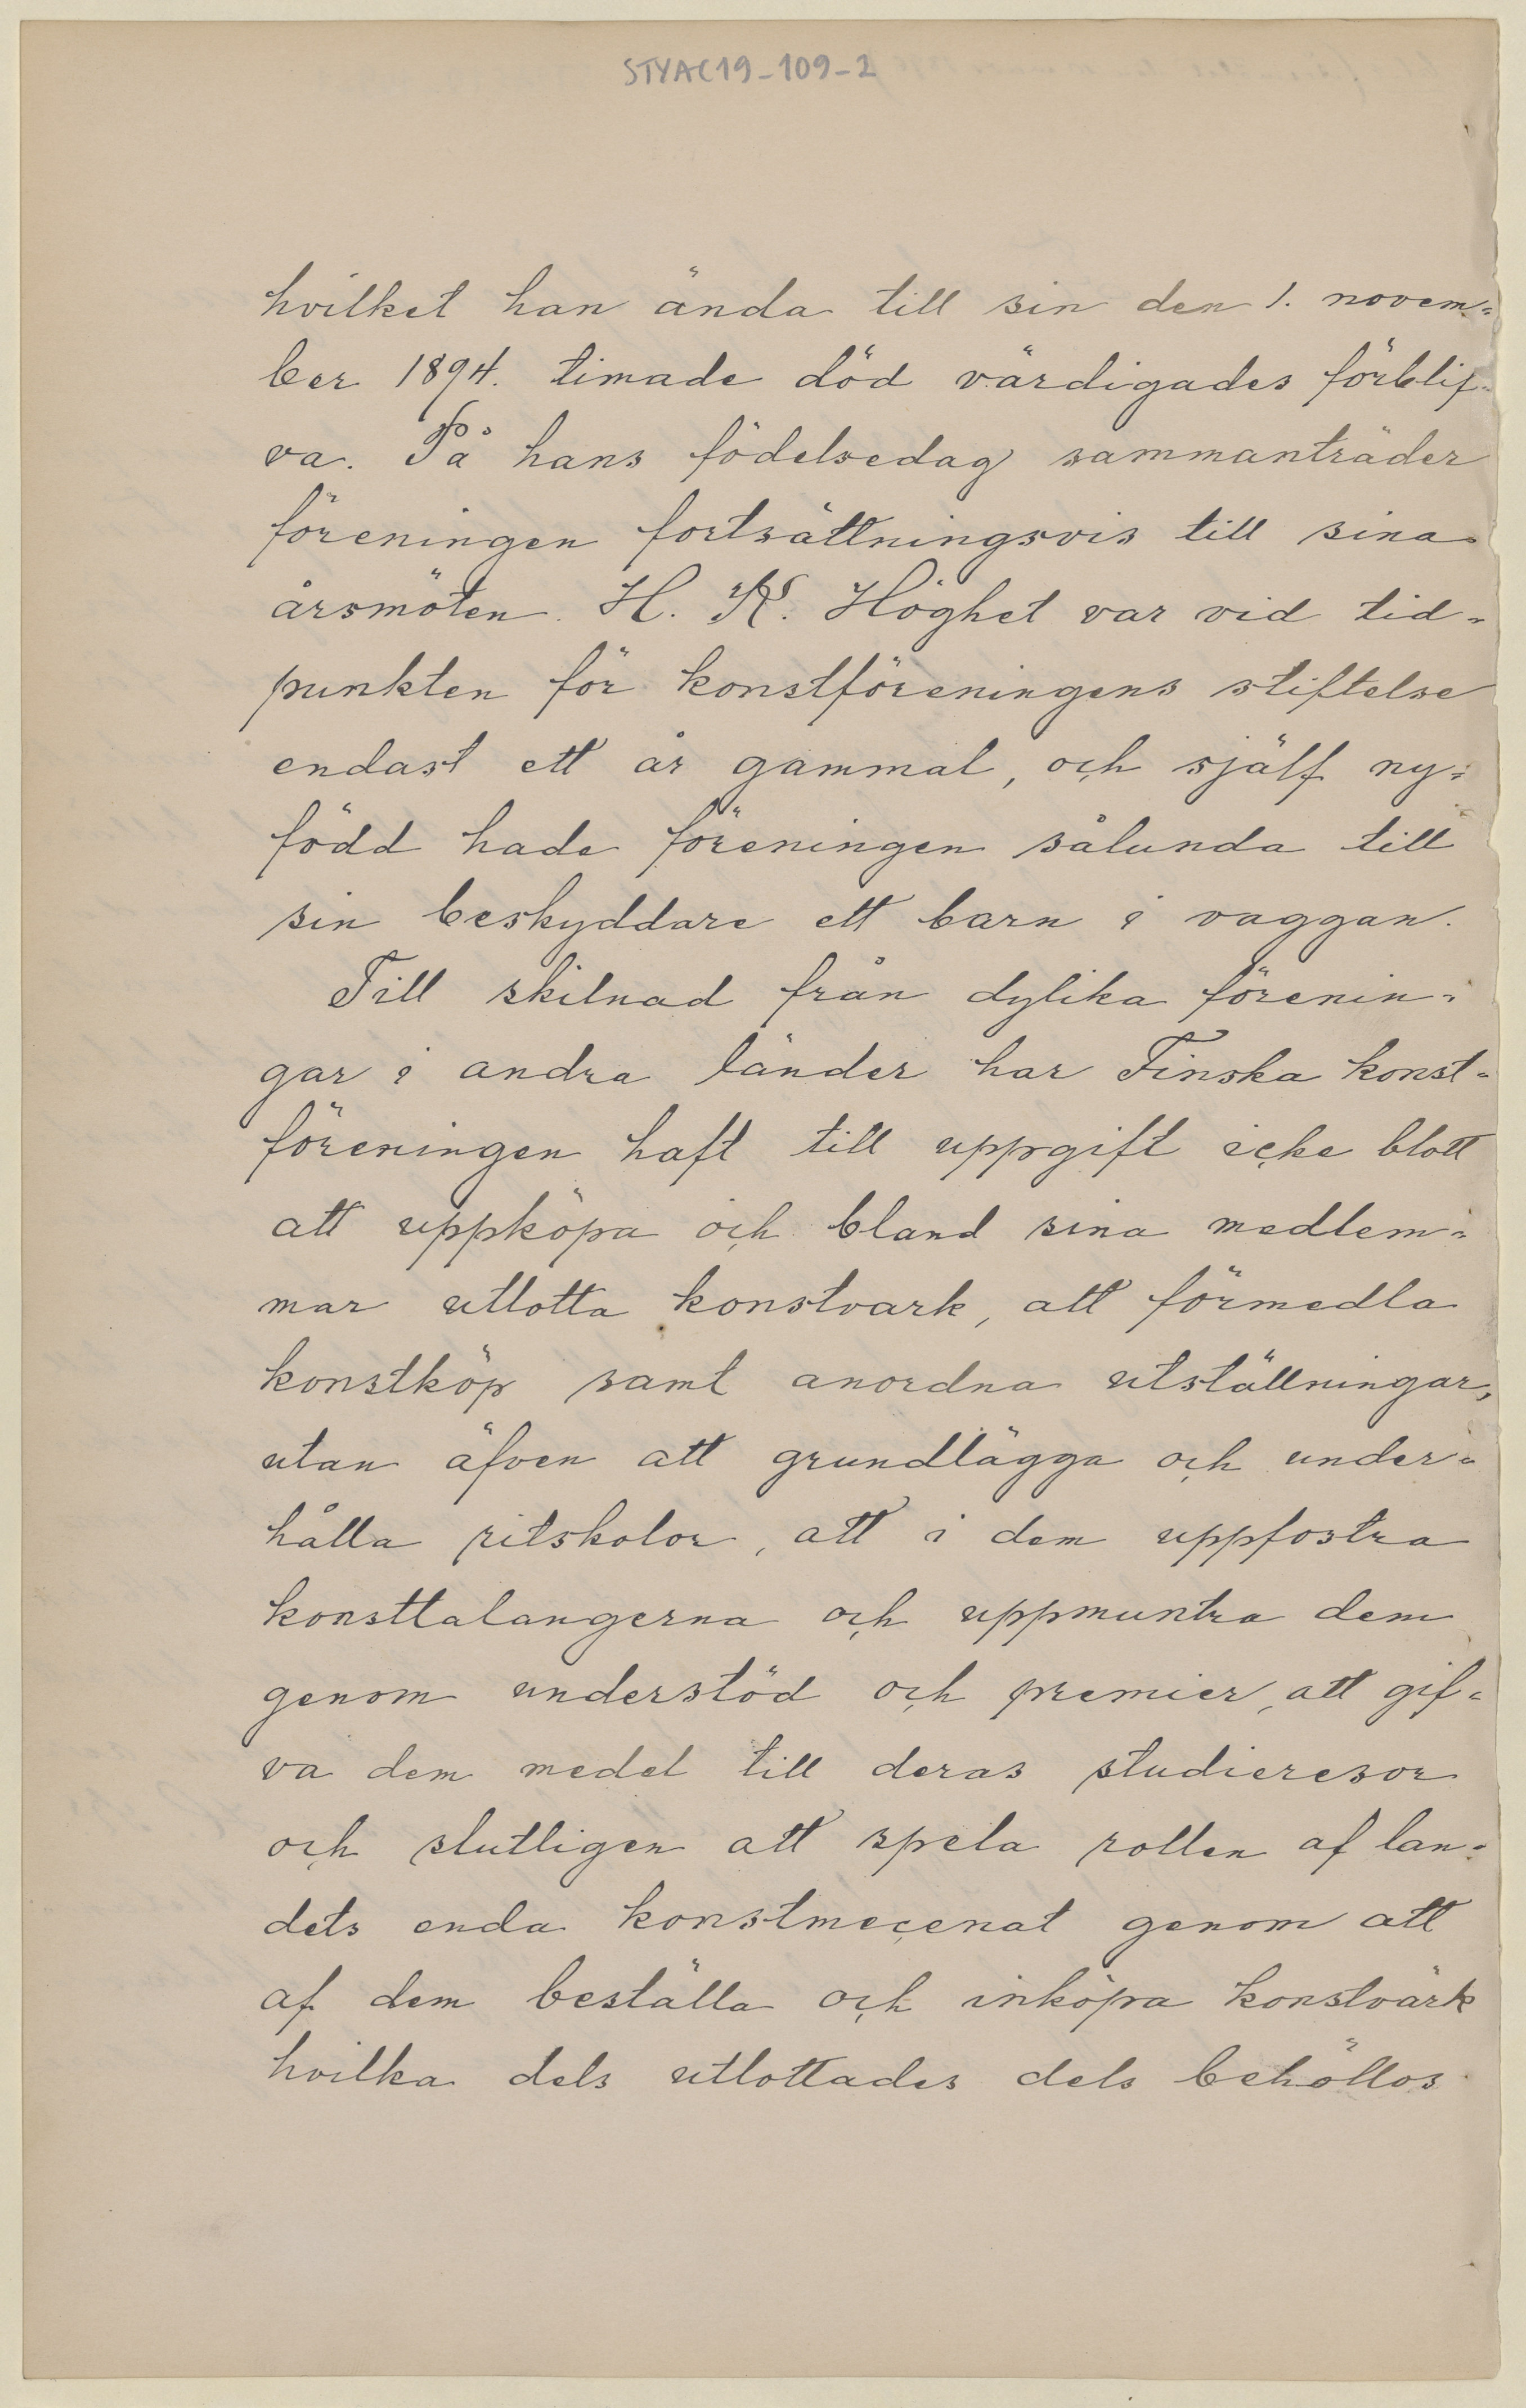 STYAC19-109-2
hvilket han ända till sin den 1. novem-
ber 1894. timade död värdigades förblif-
va. På hans födelsedag sammanträder
föreningen fortsättningsvis till sina
årsmöten. H. K. Höghet var vid tid-
punkten för konstföreningens stiftelse
endast ett år gammal, och själf ny-
född hade föreningen sålunda till
sin beskyddare ett barn i vaggan.
Till skilnad från dylika förenin-
gar i andra länder har Finska konst-
föreningen haft till uppgift icke blott
att uppköpa och bland sina medlem-
mar utlotta konstvark, att förmedla
konstköp samt anordna utställningar,
utan äfven att grundlägga och under-
hålla ritskolor, att i dem uppfostra
konsttalangerna och uppmuntra dem
genom understöd och premier, att gif-
va dem medel till deras studieresor
och slutligen att spela rollen af lan-
dets enda konstmecenat genom att
af dem beställa och inköpa konstvärk
hvilka dels utlottades dels behöllos